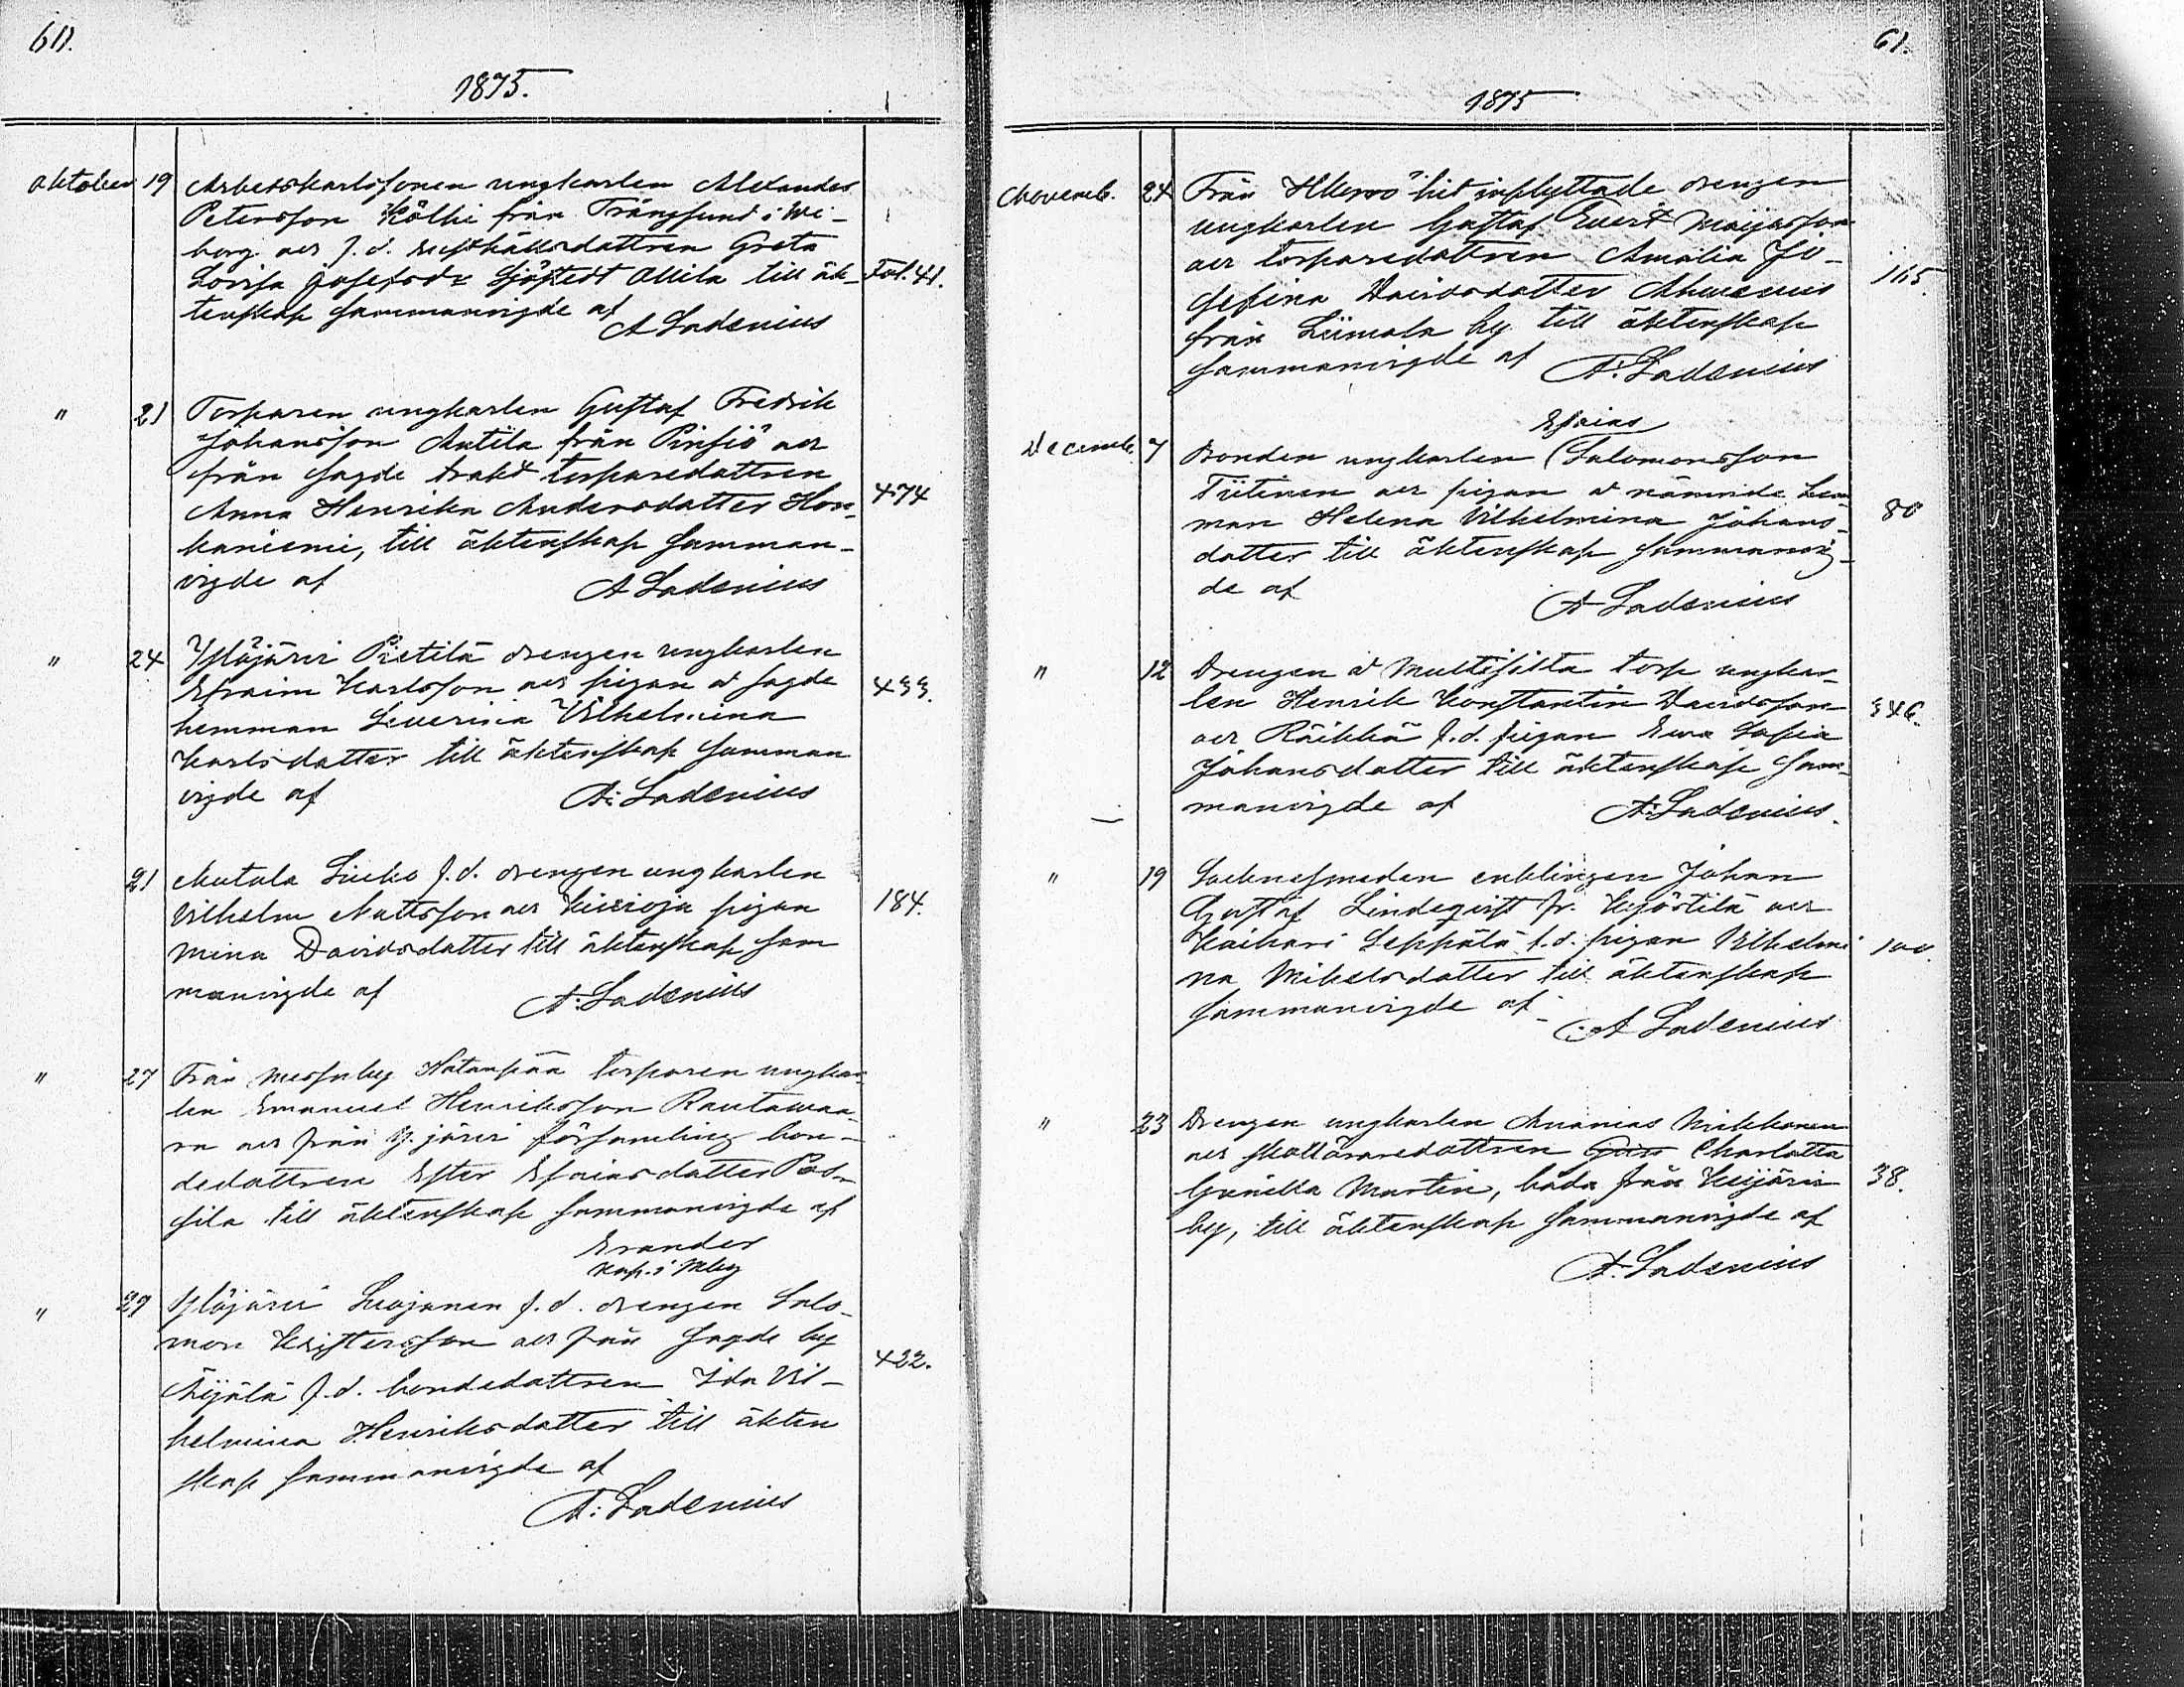 60.
1875.
Oktober 19 Arbetskarlssonen ungkarlen Alexander
Petersson Kölhi från Trångsund i Wi-
borg och f.d. rusthållsdottren Greta
Lovisa Josefsdr Sjöstedt Ollila till äk- Fol. 41.
tenskap sammanvigde af
A Ladenius
" 21 Torparen ungkarlen Gustaf Fredrik
Johansson Antila från Pinsiö och
från sagde trakt torparedottren
Anna Henrika Andersdotter Hon- 474
kaniemi, till äktenskap samman-
vigde af A Ladenius
" 24 Ylöjärvi Pietilä drengen ungkarlen
Efraim Karlsson och pigan å sagde 433.
hemman Severina Vilhelmina
Karlsdotter till äktenskap samman
vigde af A: Ladenius
21 Mutala f.d. drengen ungkarlen
Vilhelm Mattsson och pigan 184.
Mina Davidsdotter till äktenskap sam
manvigde af A: Ladenius
" 27 Från Messuby Hatanpää torparen ungkar-
len Emanuel Henriksson Rautawaa-
ra och från Y.järvi församling bon-
dedottren Ester Esaiasdotter Pas-
sila till äktenskap sammanvigde af
Erander
Kap. i Mby
" 29 Ylöjärvi f.d. drengen Salo-
mon Kristersson och från sagde by
Äijälä f.d. bondedottren Ida Vil- 422.
helmina Henriksdotter till äkten
skap sammanvigde af
A: Ladenius
61.
1875
Novemb. 24 Från hit inflyttade drengen
ungkarlen Gustaf Evert Maijasson
och torparedottren Amalia Jo- 165.
sefina Davidsdotter Ahvenus
från Liimola by till äktenskap
sammanvigde af A: Ladenius
Esaias
Decemb. 7 Bonden ungkarlen (Salomonsson
Tiitinen och pigan å nämnde hem-
man Helena Vilhelmina Johans- 80
dotter till äktenskap sammanvig-
de af
A Ladenius
" 12 Drengen å Multisilta torp ungkar-
len Henrik Konstantin Davidsson 346.
och Räikkä f.d. pigan Eva Sofia
Johansdotter till äktenskap sam-
manvigde af A: Ladenius.
" 19 Socknesmeden enklingen Johan
Gustaf Lindeqvist fr. Kyöstilä och
Kaihari Seppälä f.d. pigan Vilhelmi 100.
na Mikelsdotter till äktenskap
sammanvigde af
A Ladenius
" 23 Drengen ungkarlen Ananias Mikkonen
och skolläraredottren Charlotta
Gunilla Martin, båda från Kyijärvi 38.
by, till äktenskap sammanvigde af
A. Ladenius